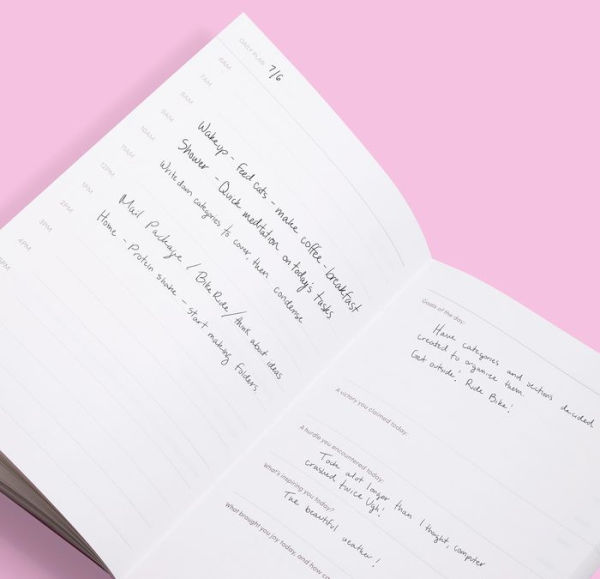 DAILY PLAN: 7/6
6AM
7AM
8AM
9AM
10AM
11AM
12PM
1PM
2PM
3PM
4PM
5PM
Wakeup - Feed cats - make coffee - breakfast
Shower - Quick meditation on today's tasks
Write down categories to cover, then condense
Mail Package / Bike Ride / think about ideas
Home - Protein shake - start making folders.
Goals of the day:
Have categories and sections decided
created to organize them
Get outside! Ride Bike!
A victory you claimed today:
A hurdle you encountered today:
Took alot longer than I thought, computer
crashed twice Ugh!
What's inspiring you today?
The beautiful weather!
What brought you joy today, and how